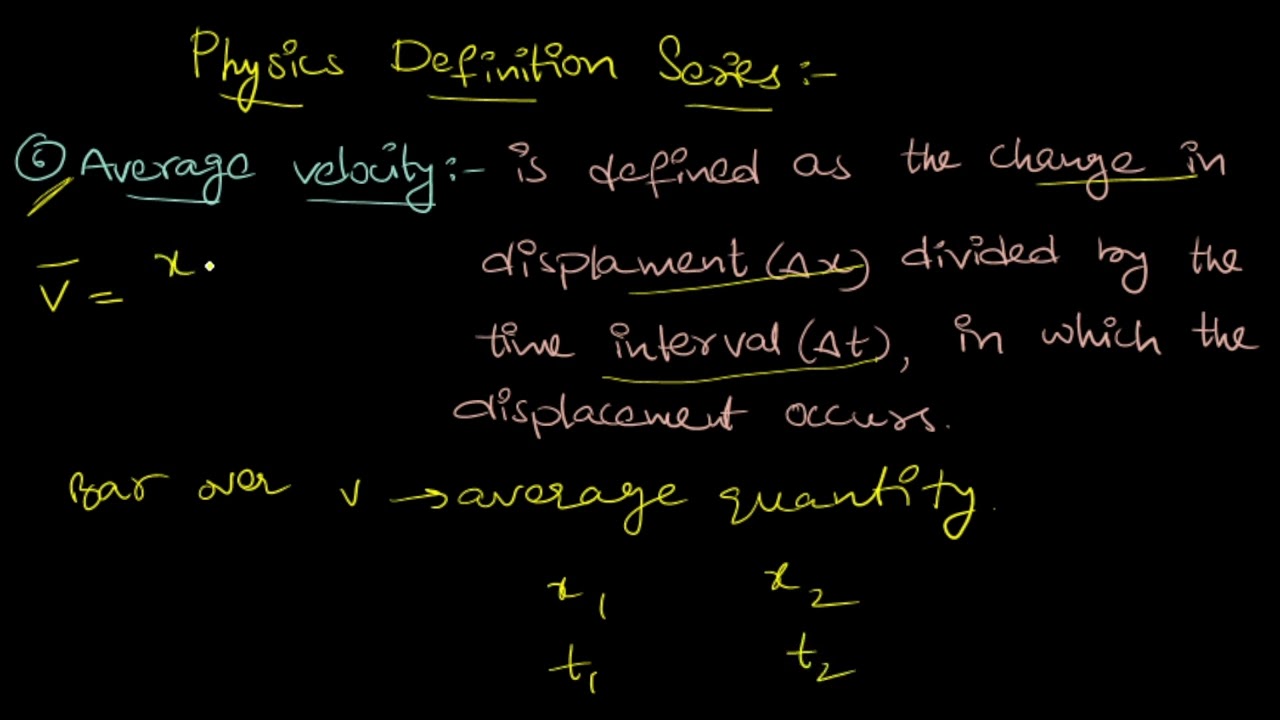 Physics Definition Series:-
⑥ Average velocity:- is defined as the change in
displament (Δx) divided by the
v̅ = x
time interval (Δt), in which the
displacement occurs.
Bar over v → average quantity.
x₁ x₂
t₁ t₂